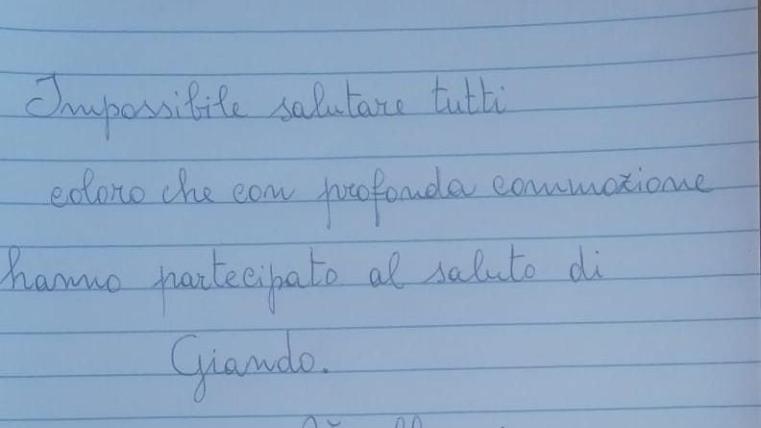 Impossibile salutare tutti
coloro che con profonda commozione
hanno partecipato al saluto di
Giando.